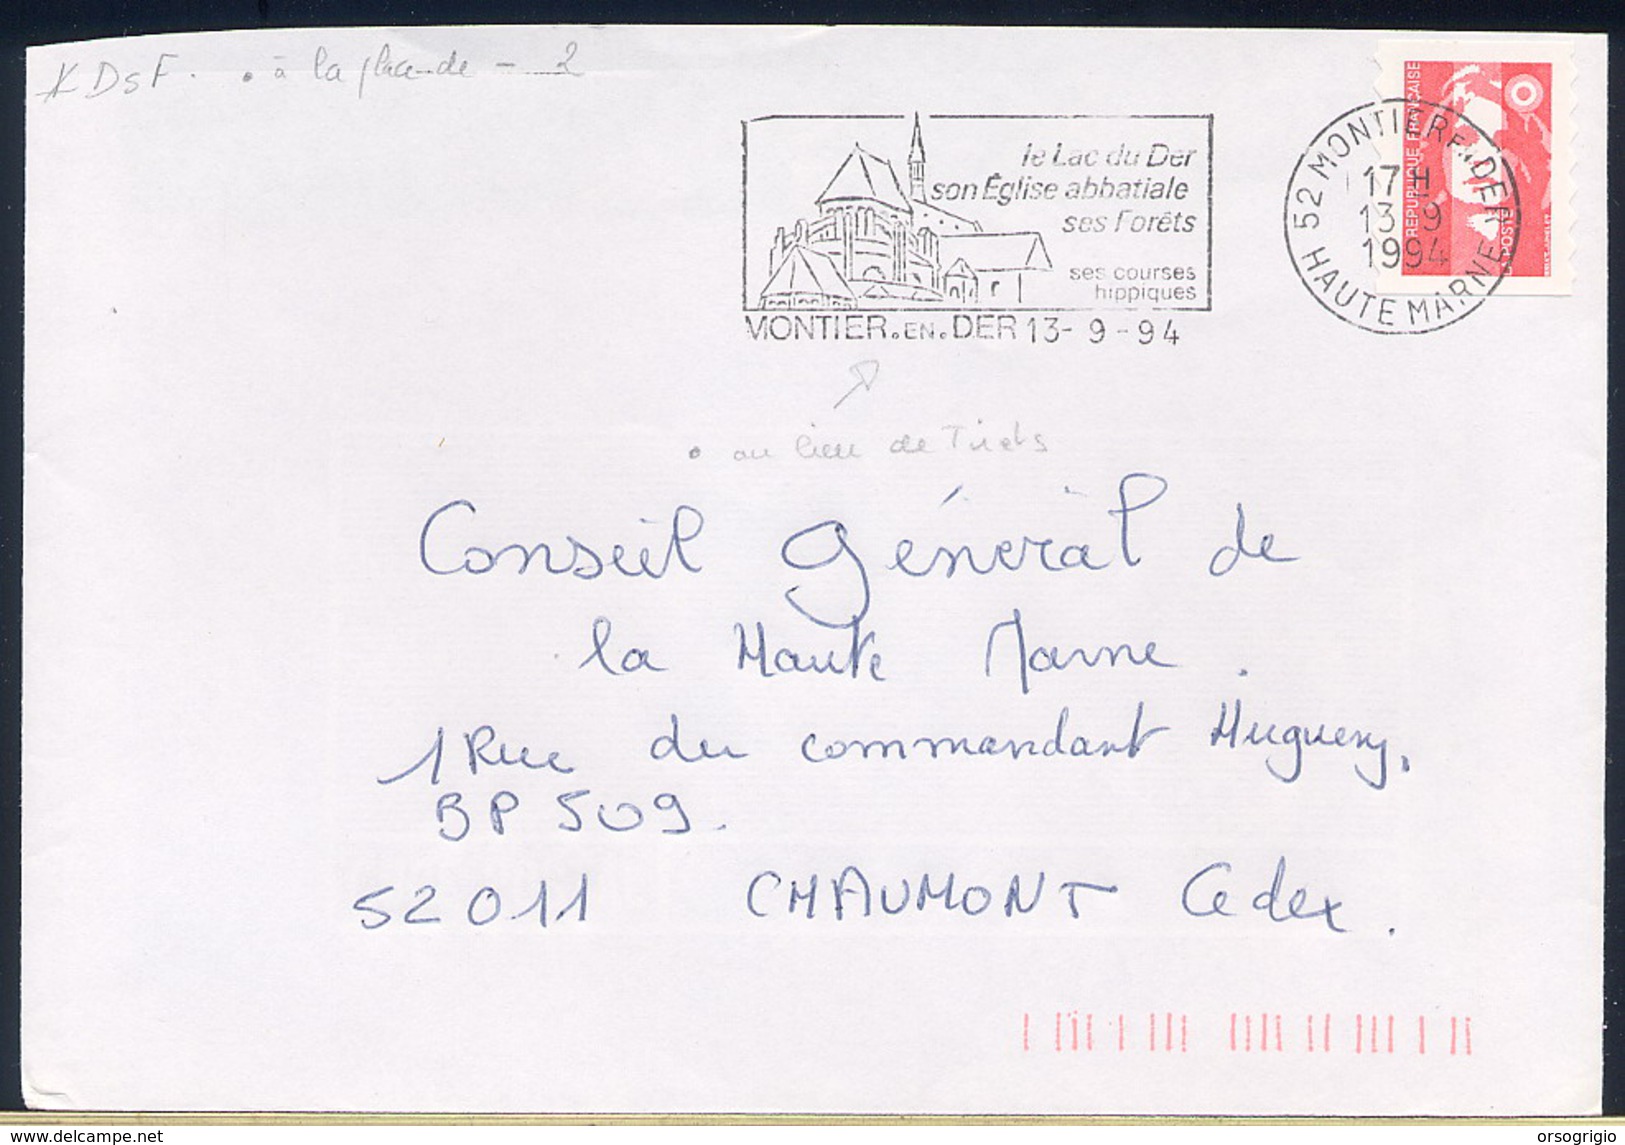 KDsF. . à la - 2
le Lac du Der
son Église abbatiale
ses Forêts
ses courses
hippiques
MONTIER.EN.DER 13-9-94
52 MONTIER EN DER
17 H
13-9
1994
HAUTE MARNE
REPUBLIQUE FRANÇAISE
POSTES
. au lieu de Tirets
Conseil général de
la Haute Marne.
1 Rue du commandant Hugueny,
BP 509.
52011 CHAUMONT Cedex.
delcampe.net
orsogrigio